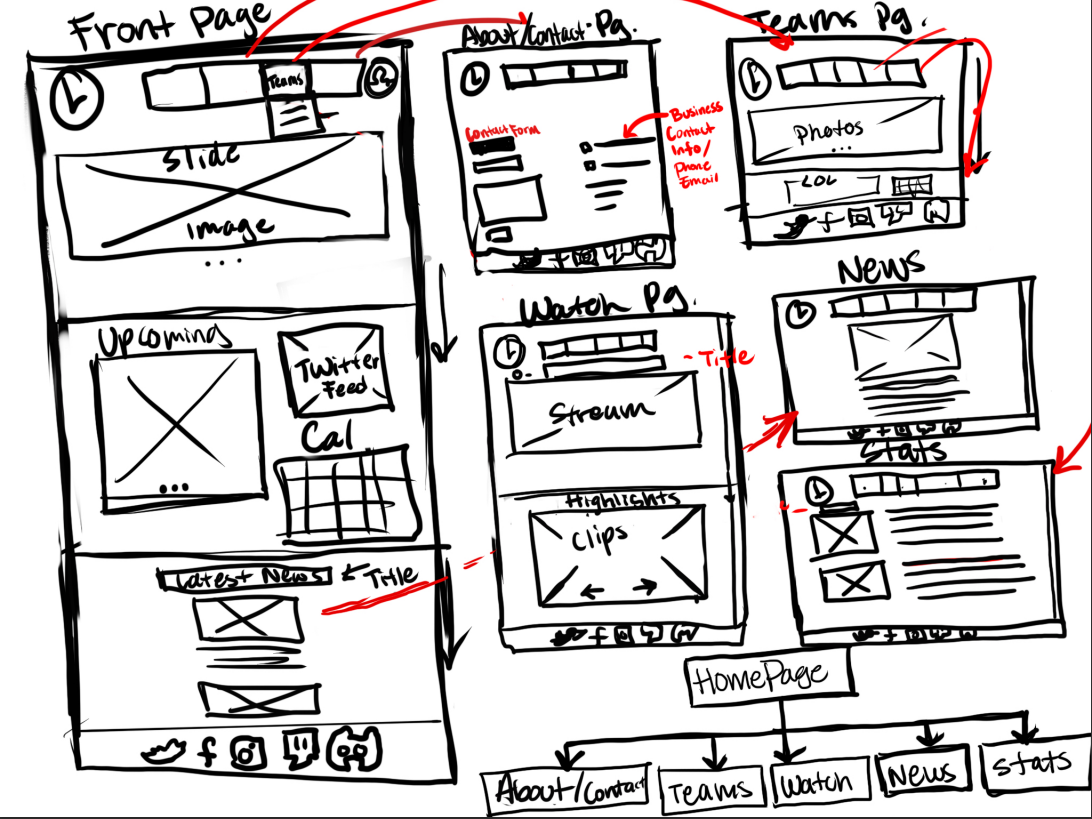 Front Page
Teams
Slide
Image
Upcoming
Twitter
Feed
Cal
Latest News
Title
About/Contact Pg.
Contact Form
Business
Contact
Info/
Phone
Email
Teams Pg.
Photos
LOL
Watch Pg.
~Title
Stream
Highlights
Clips
News
Stats
HomePage
About/Contact
Teams
Watch
News
Stats